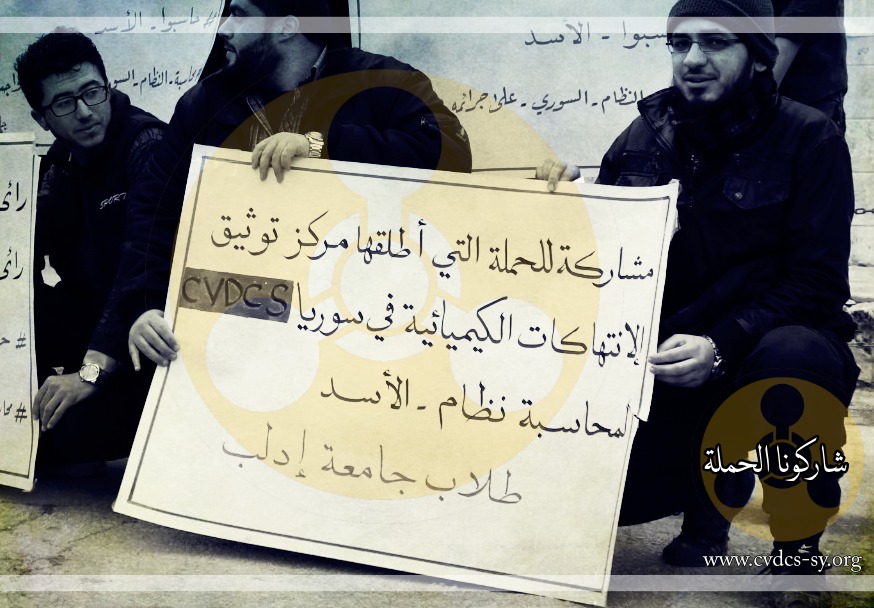 #حاسبوا - الأسد
#محاسبة - النظام - السوري
سبوا - الأسد
النظام - السوري - على جرائمه
مشاركة للحملة التي أطلقها مركز توثيق
الإنتهاكات الكيميائية في سوريا CVDCS
لمحاسبة نظام - الأسد
طلاب جامعة إدلب
SPORT
شاركونا الحملة
www.cvdcs-sy.org